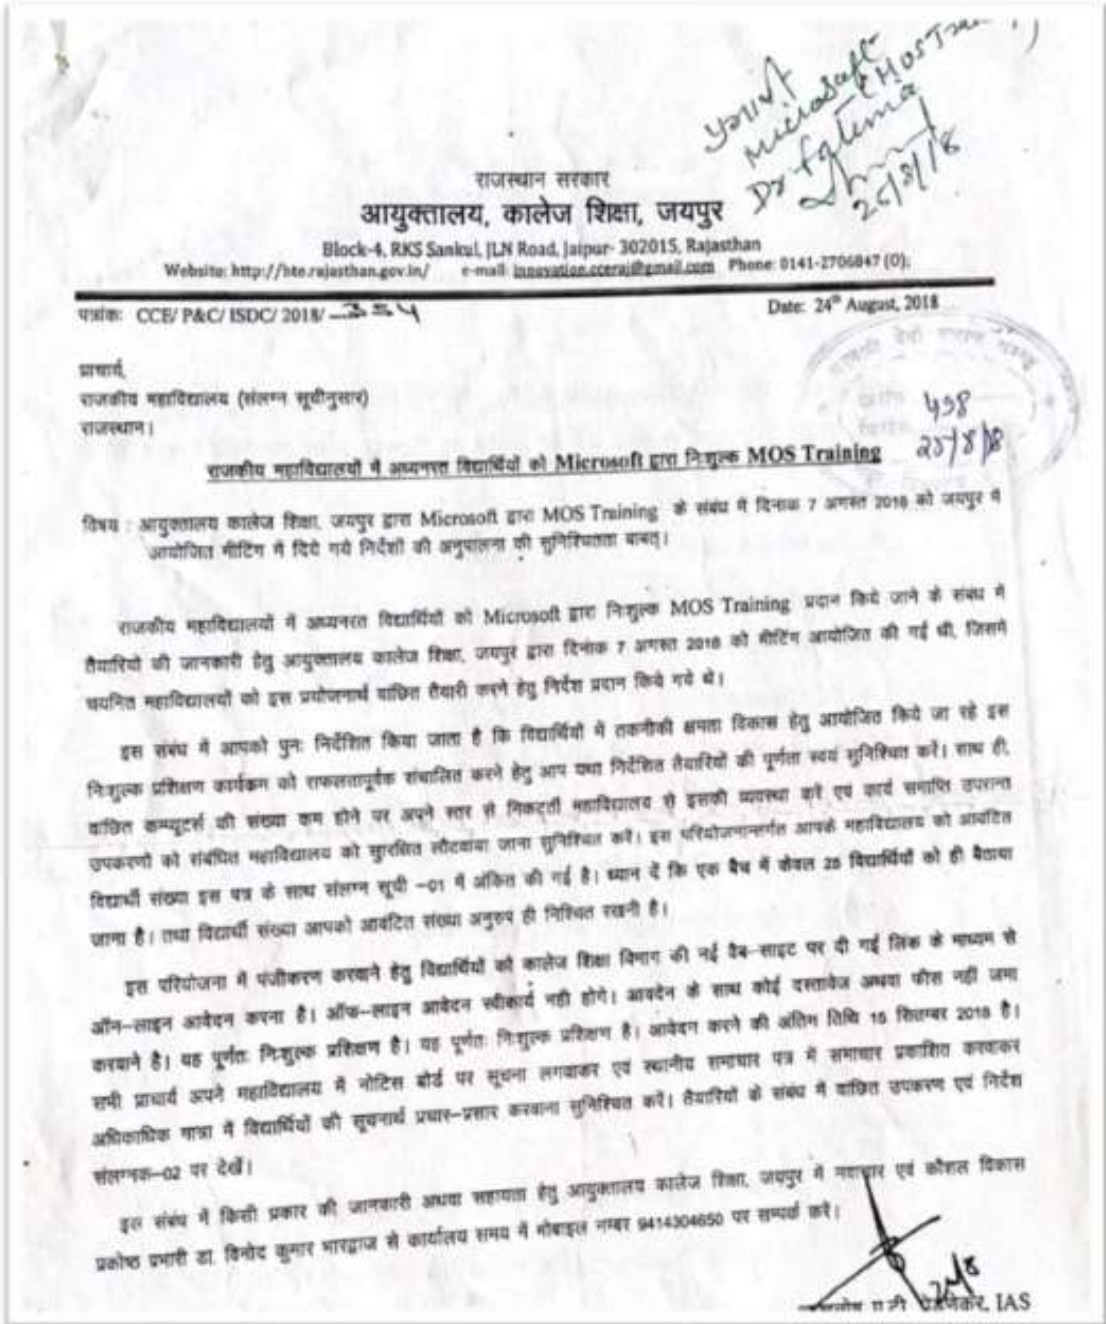 Microsoft
(MOS Training)
Dr Fatema
25/8/18
राजस्थान सरकार
आयुक्तालय, कालेज शिक्षा, जयपुर
Block-4, RKS Sankul, JLN Road, Jaipur- 302015, Rajasthan
Website: http://hte.rajasthan.gov.in/ e-mail: innovation.cceraj@gmail.com Phone: 0141-2706847 (O);
पत्रांक: CCE/ P&C/ ISDC/ 2018/ 354 Date: 24th August, 2018
प्राचार्य,
राजकीय महाविद्यालय (संलग्न सूचीनुसार)
राजस्थान।
498
25/8/18
राजकीय महाविद्यालयों में अध्यनरत विद्यार्थियों को Microsoft द्वारा निःशुल्क MOS Training
विषय : आयुक्तालय कालेज शिक्षा, जयपुर द्वारा Microsoft द्वारा MOS Training के संबंध में दिनांक 7 अगस्त 2018 को जयपुर में
आयोजित मीटिंग में दिये गये निर्देशों की अनुपालना की सुनिश्चितता बाबत्।
राजकीय महाविद्यालयों में अध्यनरत विद्यार्थियों को Microsoft द्वारा निःशुल्क MOS Training प्रदान किये जाने के संबंध में
तैयारियों की जानकारी हेतु आयुक्तालय कालेज शिक्षा, जयपुर द्वारा दिनांक 7 अगस्त 2018 को मीटिंग आयोजित की गई थी, जिसमे
चयनित महाविद्यालयों को इस प्रयोजनार्थ वांछित तैयारी करने हेतु निर्देश प्रदान किये गये थे।
इस संबंध में आपको पुनः निर्देशित किया जाता है कि विद्यार्थियों में तकनीकी क्षमता विकास हेतु आयोजित किये जा रहे इस
निःशुल्क प्रशिक्षण कार्यक्रम को सफलतापूर्वक संचालित करने हेतु आप यथा निर्देशित तैयारियों की पूर्णता स्वयं सुनिश्चित करें। साथ ही,
वांछित कम्प्यूटर्स की संख्या कम होने पर अपने स्तर से निकटर्ती महाविद्यालय से इसकी व्यवस्था करें एवं कार्य समाप्ति उपरान्त
उपकरणों को संबंधित महाविद्यालय को सुरक्षित लौटवाया जाना सुनिश्चित करें। इस परियोजनान्तर्गत आपके महाविद्यालय को आवंटित
विद्यार्थी संख्या इस पत्र के साथ संलग्न सूची –01 में अंकित की गई है। ध्यान दें कि एक बैच में केवल 25 विद्यार्थियों को ही बैठाया
जाना है। तथा विद्यार्थी संख्या आपको आवंटित संख्या अनुरुप ही निश्चित रखनी है।
इस परियोजना में पंजीकरण करवाने हेतु विद्यार्थियों को कालेज शिक्षा विभाग की नई वैब–साइट पर दी गई लिंक के माध्यम से
ऑन–लाइन आवेदन करना है। ऑफ–लाइन आवेदन स्वीकार्य नही होगे। आवदेन के साथ कोई दस्तावेज अथवा फीस नहीं जमा
करवाने है। यह पूर्णतः निःशुल्क प्रशिक्षण है। यह पूर्णतः निःशुल्क प्रशिक्षण है। आवेदन करने की अंतिम तिथि 15 सितम्बर 2018 है।
सभी प्राचार्य अपने महाविद्यालय में नोटिस बोर्ड पर सूचना लगवाकर एवं स्थानीय समाचार पत्र में समाचार प्रकाशित करवाकर
अधिकाधिक मात्रा में विद्यार्थियों की सूचनार्थ प्रचार–प्रसार करवाना सुनिश्चित करें। तैयारियों के संबध में वांछित उपकरण एवं निर्देश
संलग्नक–02 पर देखें।
इस संबंध में किसी प्रकार की जानकारी अथवा सहायता हेतु आयुक्तालय कालेज शिक्षा, जयपुर में नवाचार एवं कौशल विकास
प्रकोष्ठ प्रभारी डा. विनोद कुमार भारद्वाज से कार्यालय समय में मोबाइल नम्बर 9414304650 पर सम्पर्क करें।
24/8
IAS